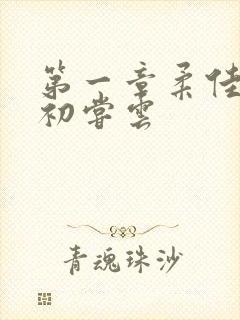 第一章柔佳
初尝雲
青魂珠沙